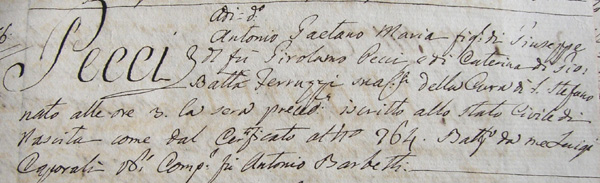 Adi: do
Antonio Gaetano Maria figo: di Giuseppe
Pecci di fu Girolamo Pecci, e di Caterina di Gio:
Batta Ferruzzi della Cura di S. Stefano
nato alle ore 3. la sera preced: iscritto allo Stato Civile di
Nascita come dal Certificato al No 764. Batto da me Luigi
Caporali Compe fu Antonio Barbetti.